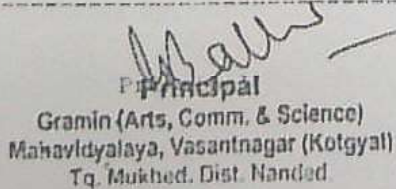 Principal
Gramin (Arts, Comm. & Science)
Mahavidyalaya, Vasantnagar (Kotgyal)
Tq. Mukhed. Dist. Nanded